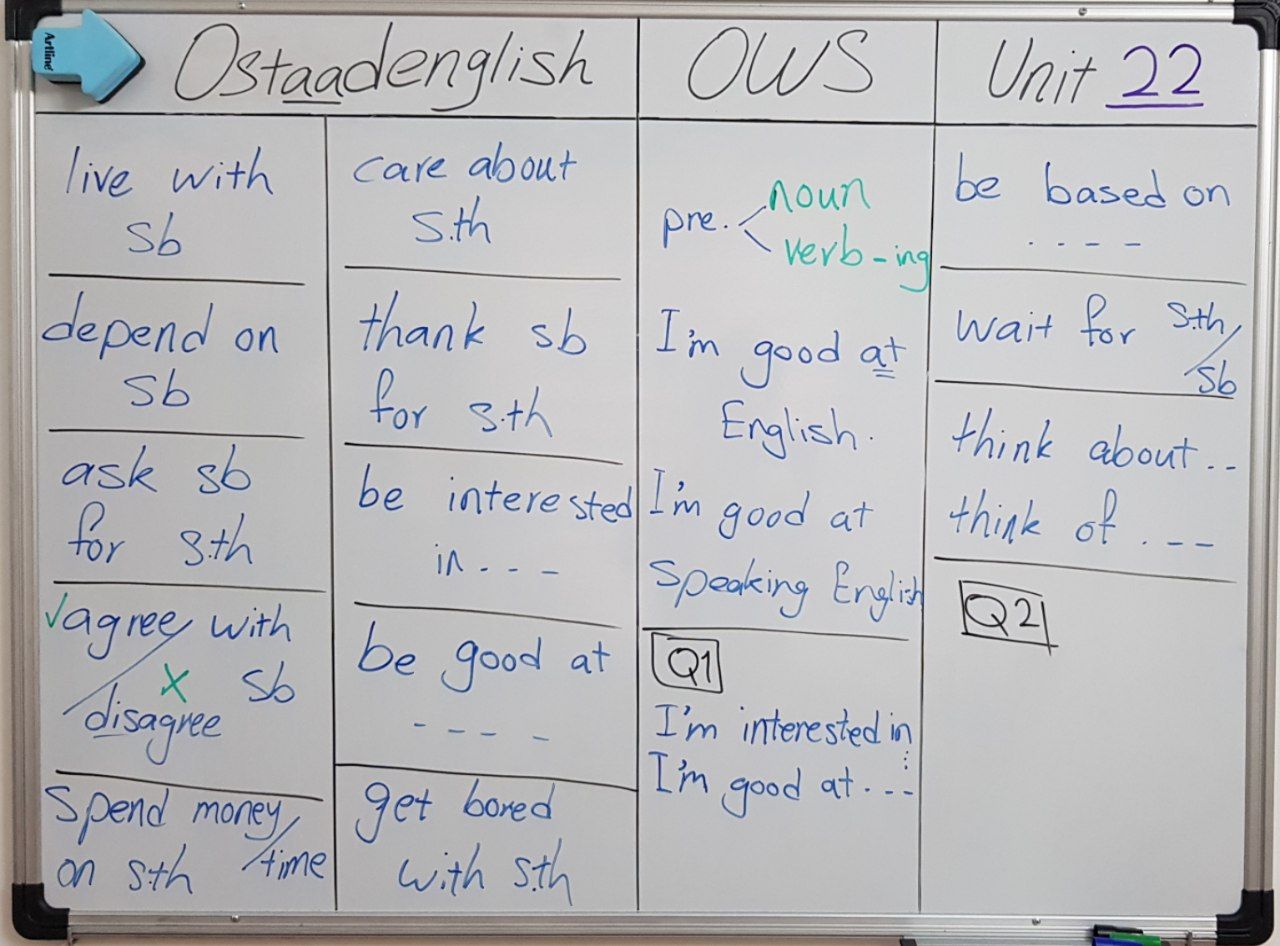 Artline
Ostaadenglish
OWS
Unit 22
live with
sb
depend on
sb
ask sb
for s.th
✓agree/ with
✗ sb
disagree
Spend money/
on s.th time
care about
s.th
thank sb
for s.th
be interested
in - - -
be good at
- - - -
get bored
with s.th
pre. < noun
verb-ing
I'm good at
English.
I'm good at
Speaking English
Q1
I'm interested in
...
I'm good at - - -
be based on
- - - -
wait for s.th/
sb
think about ..
think of . - -
Q2